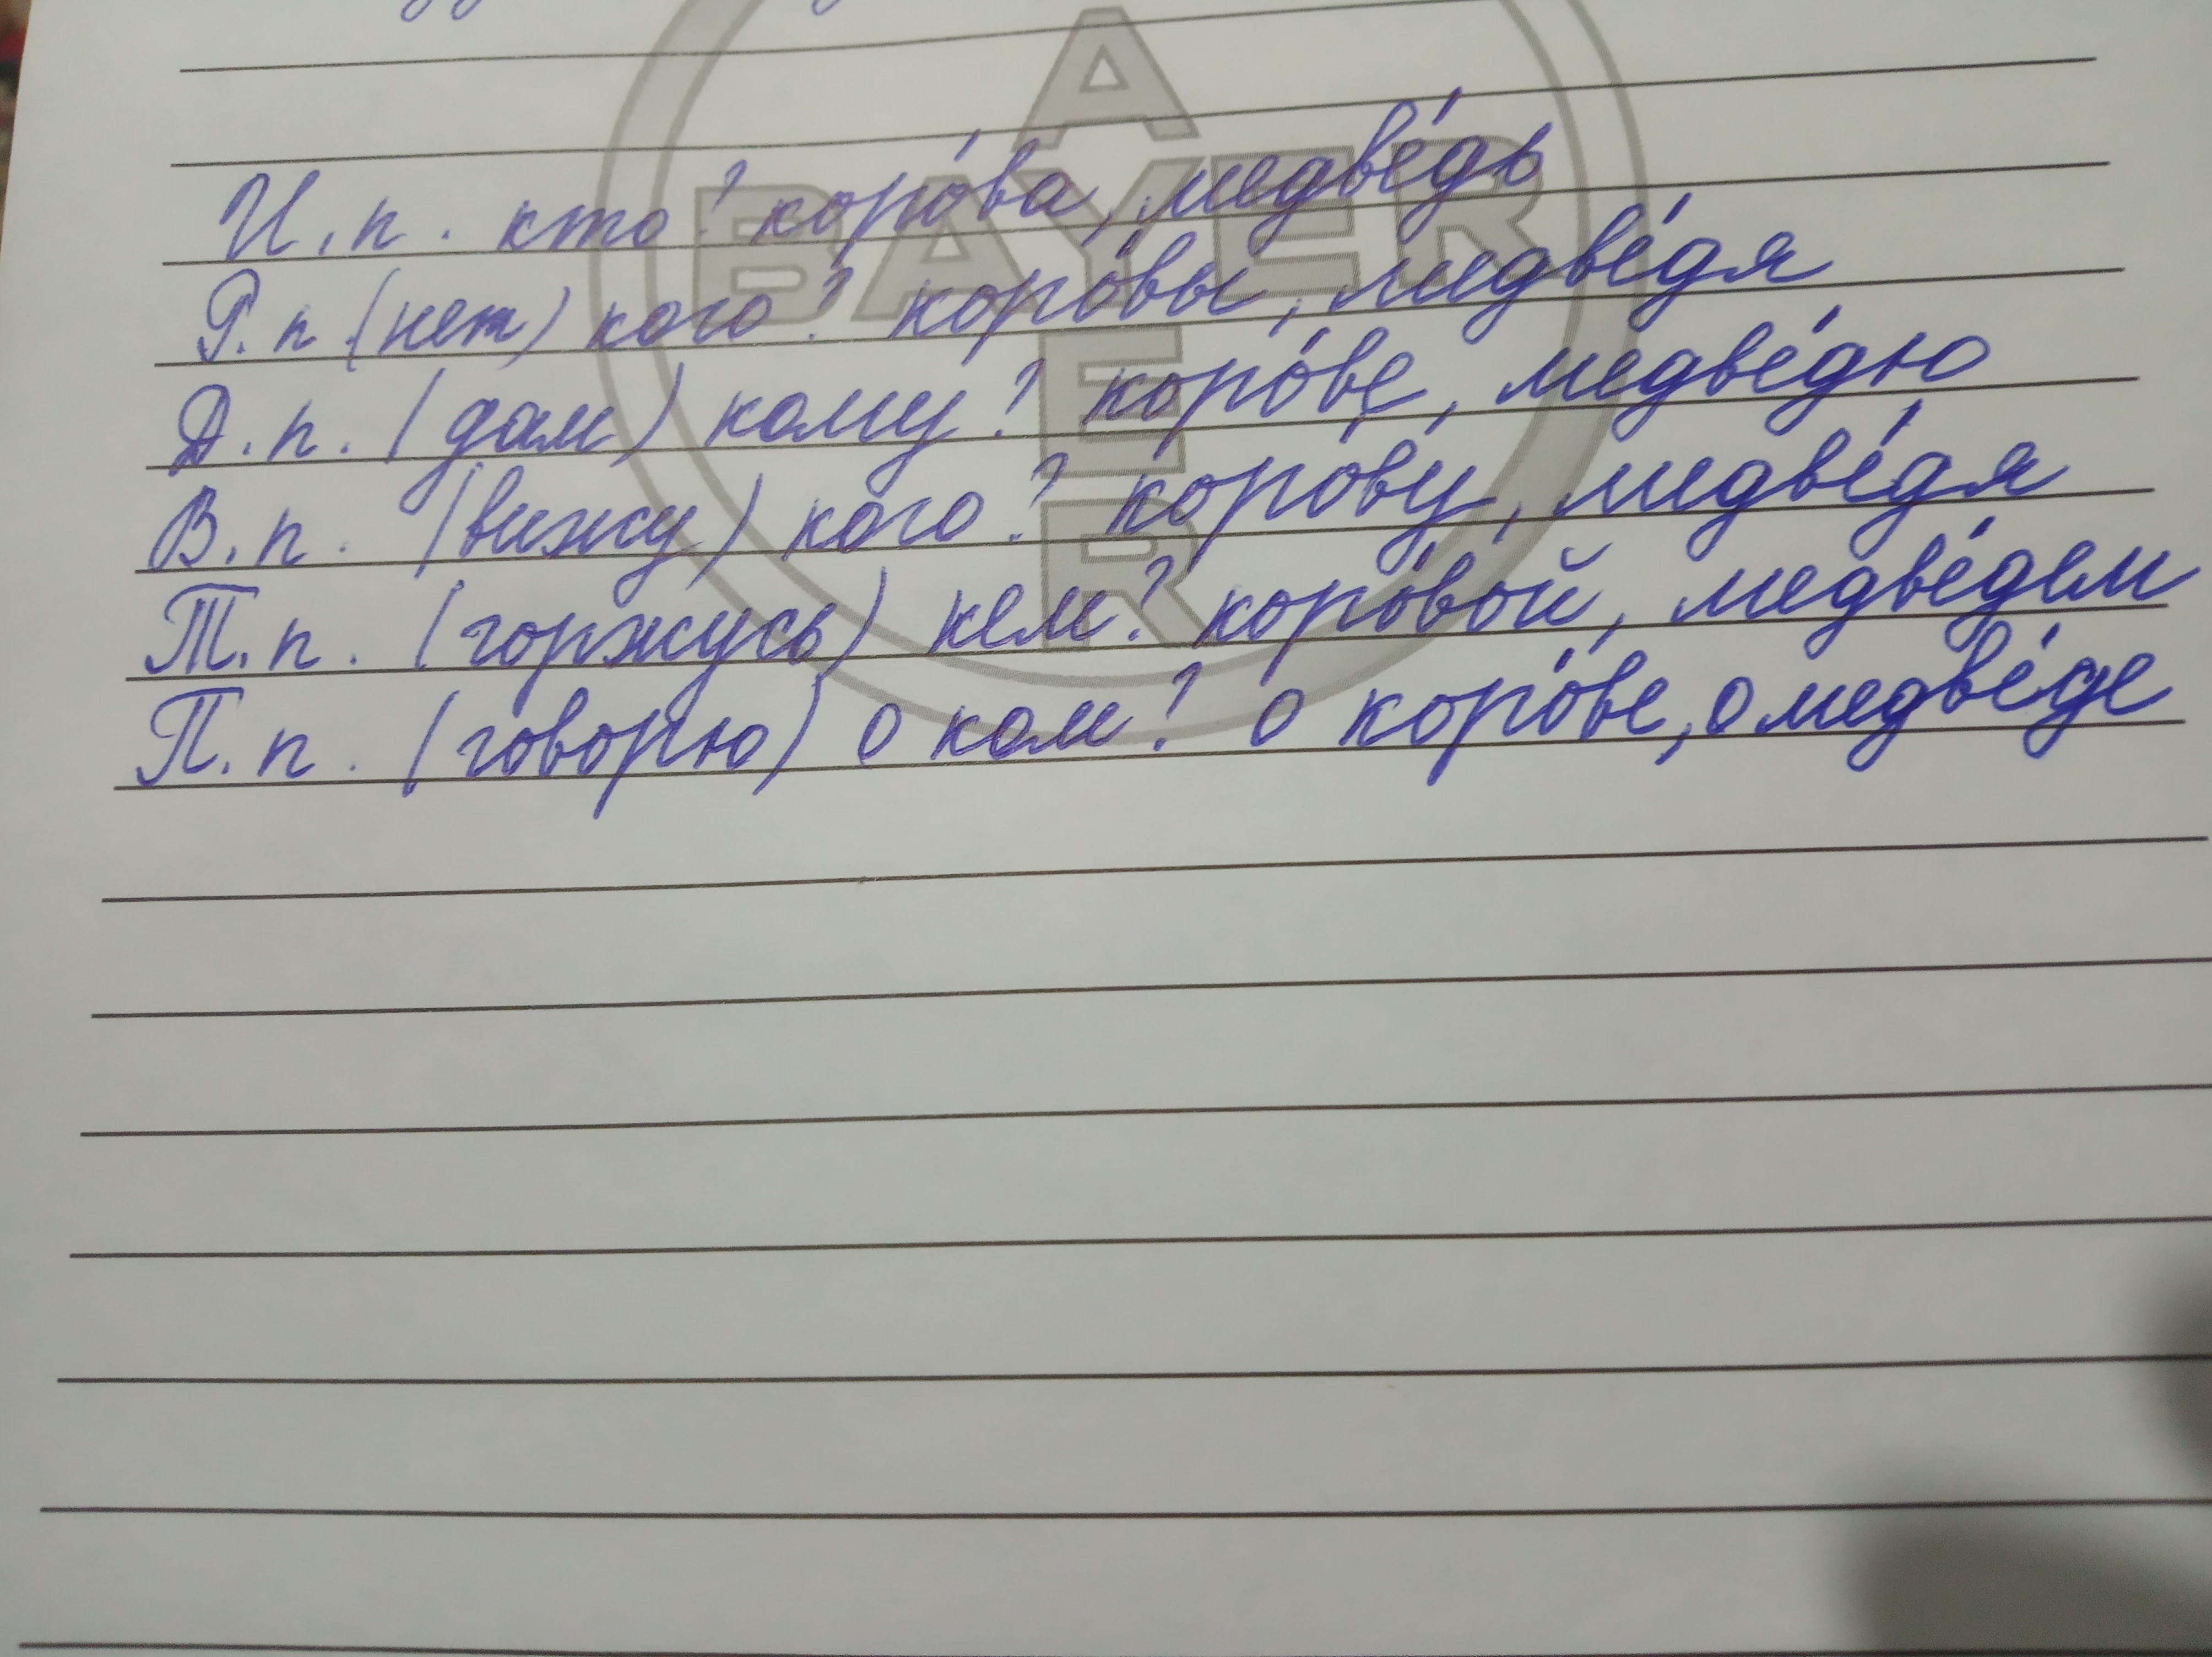 A
BAYER
E
R
И.п. кто? коро́ва, медве́дь
Р.п (нет) кого? коро́вы, медве́дя
Д.п. (дам) кому? коро́ве, медве́дю
В.п. (вижу) кого? коро́ву, медве́дя
Т.п. (горжусь) кем? коро́вой, медве́дем
П.п. (говорю) о ком? о коро́ве, о медве́де